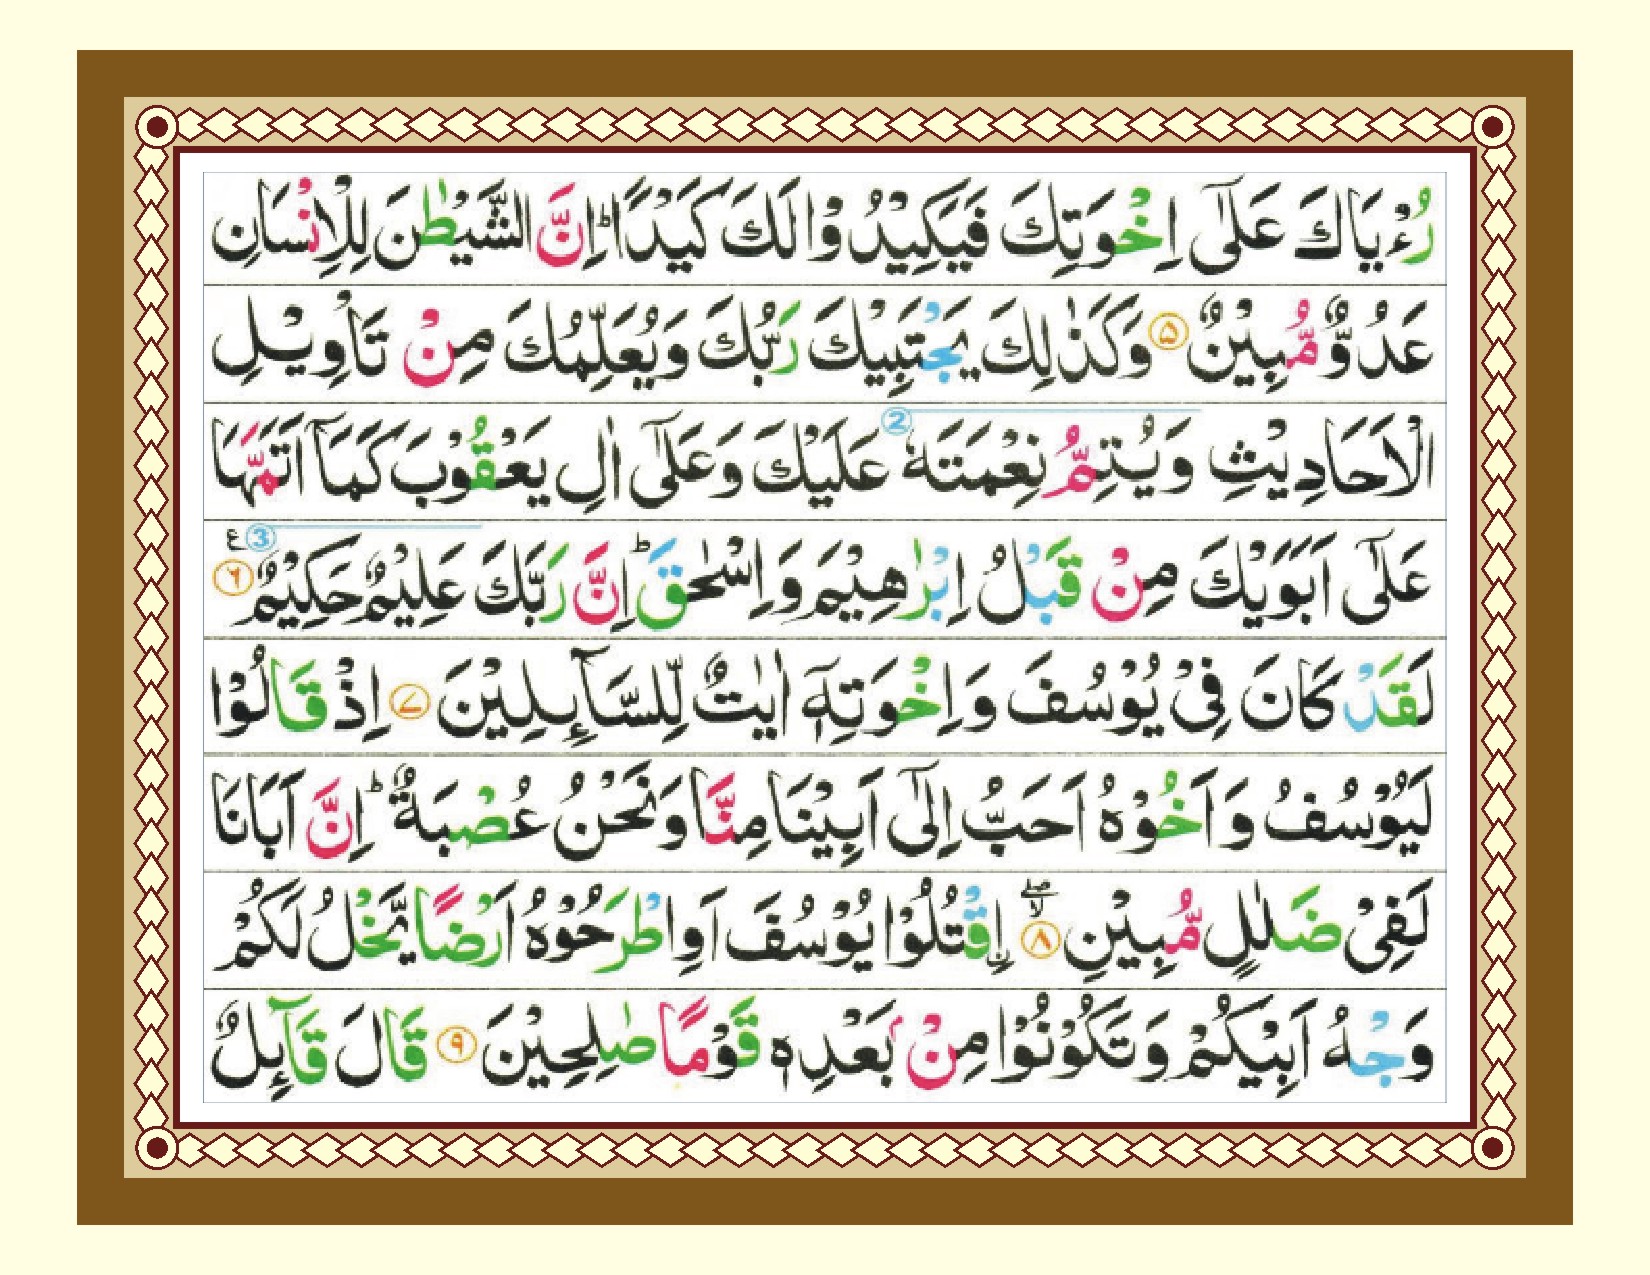 رُءْيَاكَ عَلٰٓى اِخْوَتِكَ فَيَكِيْدُوْا لَكَ كَيْدًا ؕ اِنَّ الشَّيْطٰنَ لِلْاِنْسَانِ
عَدُوٌّ مُّبِيْنٌ ۵ وَكَذٰلِكَ يَجْتَبِيْكَ رَبُّكَ وَيُعَلِّمُكَ مِنْ تَاْوِيْلِ
الْاَحَادِيْثِ وَيُتِمُّ نِعْمَتَهٗ 2 عَلَيْكَ وَعَلٰٓى اٰلِ يَعْقُوْبَ كَمَاۤ اَتَمَّهَا
عَلٰٓى اَبَوَيْكَ مِنْ قَبْلُ اِبْرٰهِيْمَ وَاِسْحٰقَ ؕ اِنَّ رَبَّكَ عَلِيْمٌ حَكِيْمٌ 3 ع ۶
لَقَدْ كَانَ فِيْ يُوْسُفَ وَاِخْوَتِهٖۤ اٰيٰتٌ لِّلسَّآئِلِيْنَ ۷ اِذْ قَالُوْا
لَيُوْسُفُ وَاَخُوْهُ اَحَبُّ اِلٰٓى اَبِيْنَا مِنَّا وَنَحْنُ عُصْبَةٌ ؕ اِنَّ اَبَانَا
لَفِيْ ضَلٰلٍ مُّبِيْنِ ۸ ۖ لا اۨقْتُلُوْا يُوْسُفَ اَوِ اطْرَحُوْهُ اَرْضًا يَّخْلُ لَكُمْ
وَجْهُ اَبِيْكُمْ وَتَكُوْنُوْا مِنْۢ بَعْدِهٖ قَوْمًا صٰلِحِيْنَ ۹ قَالَ قَآئِلٌ